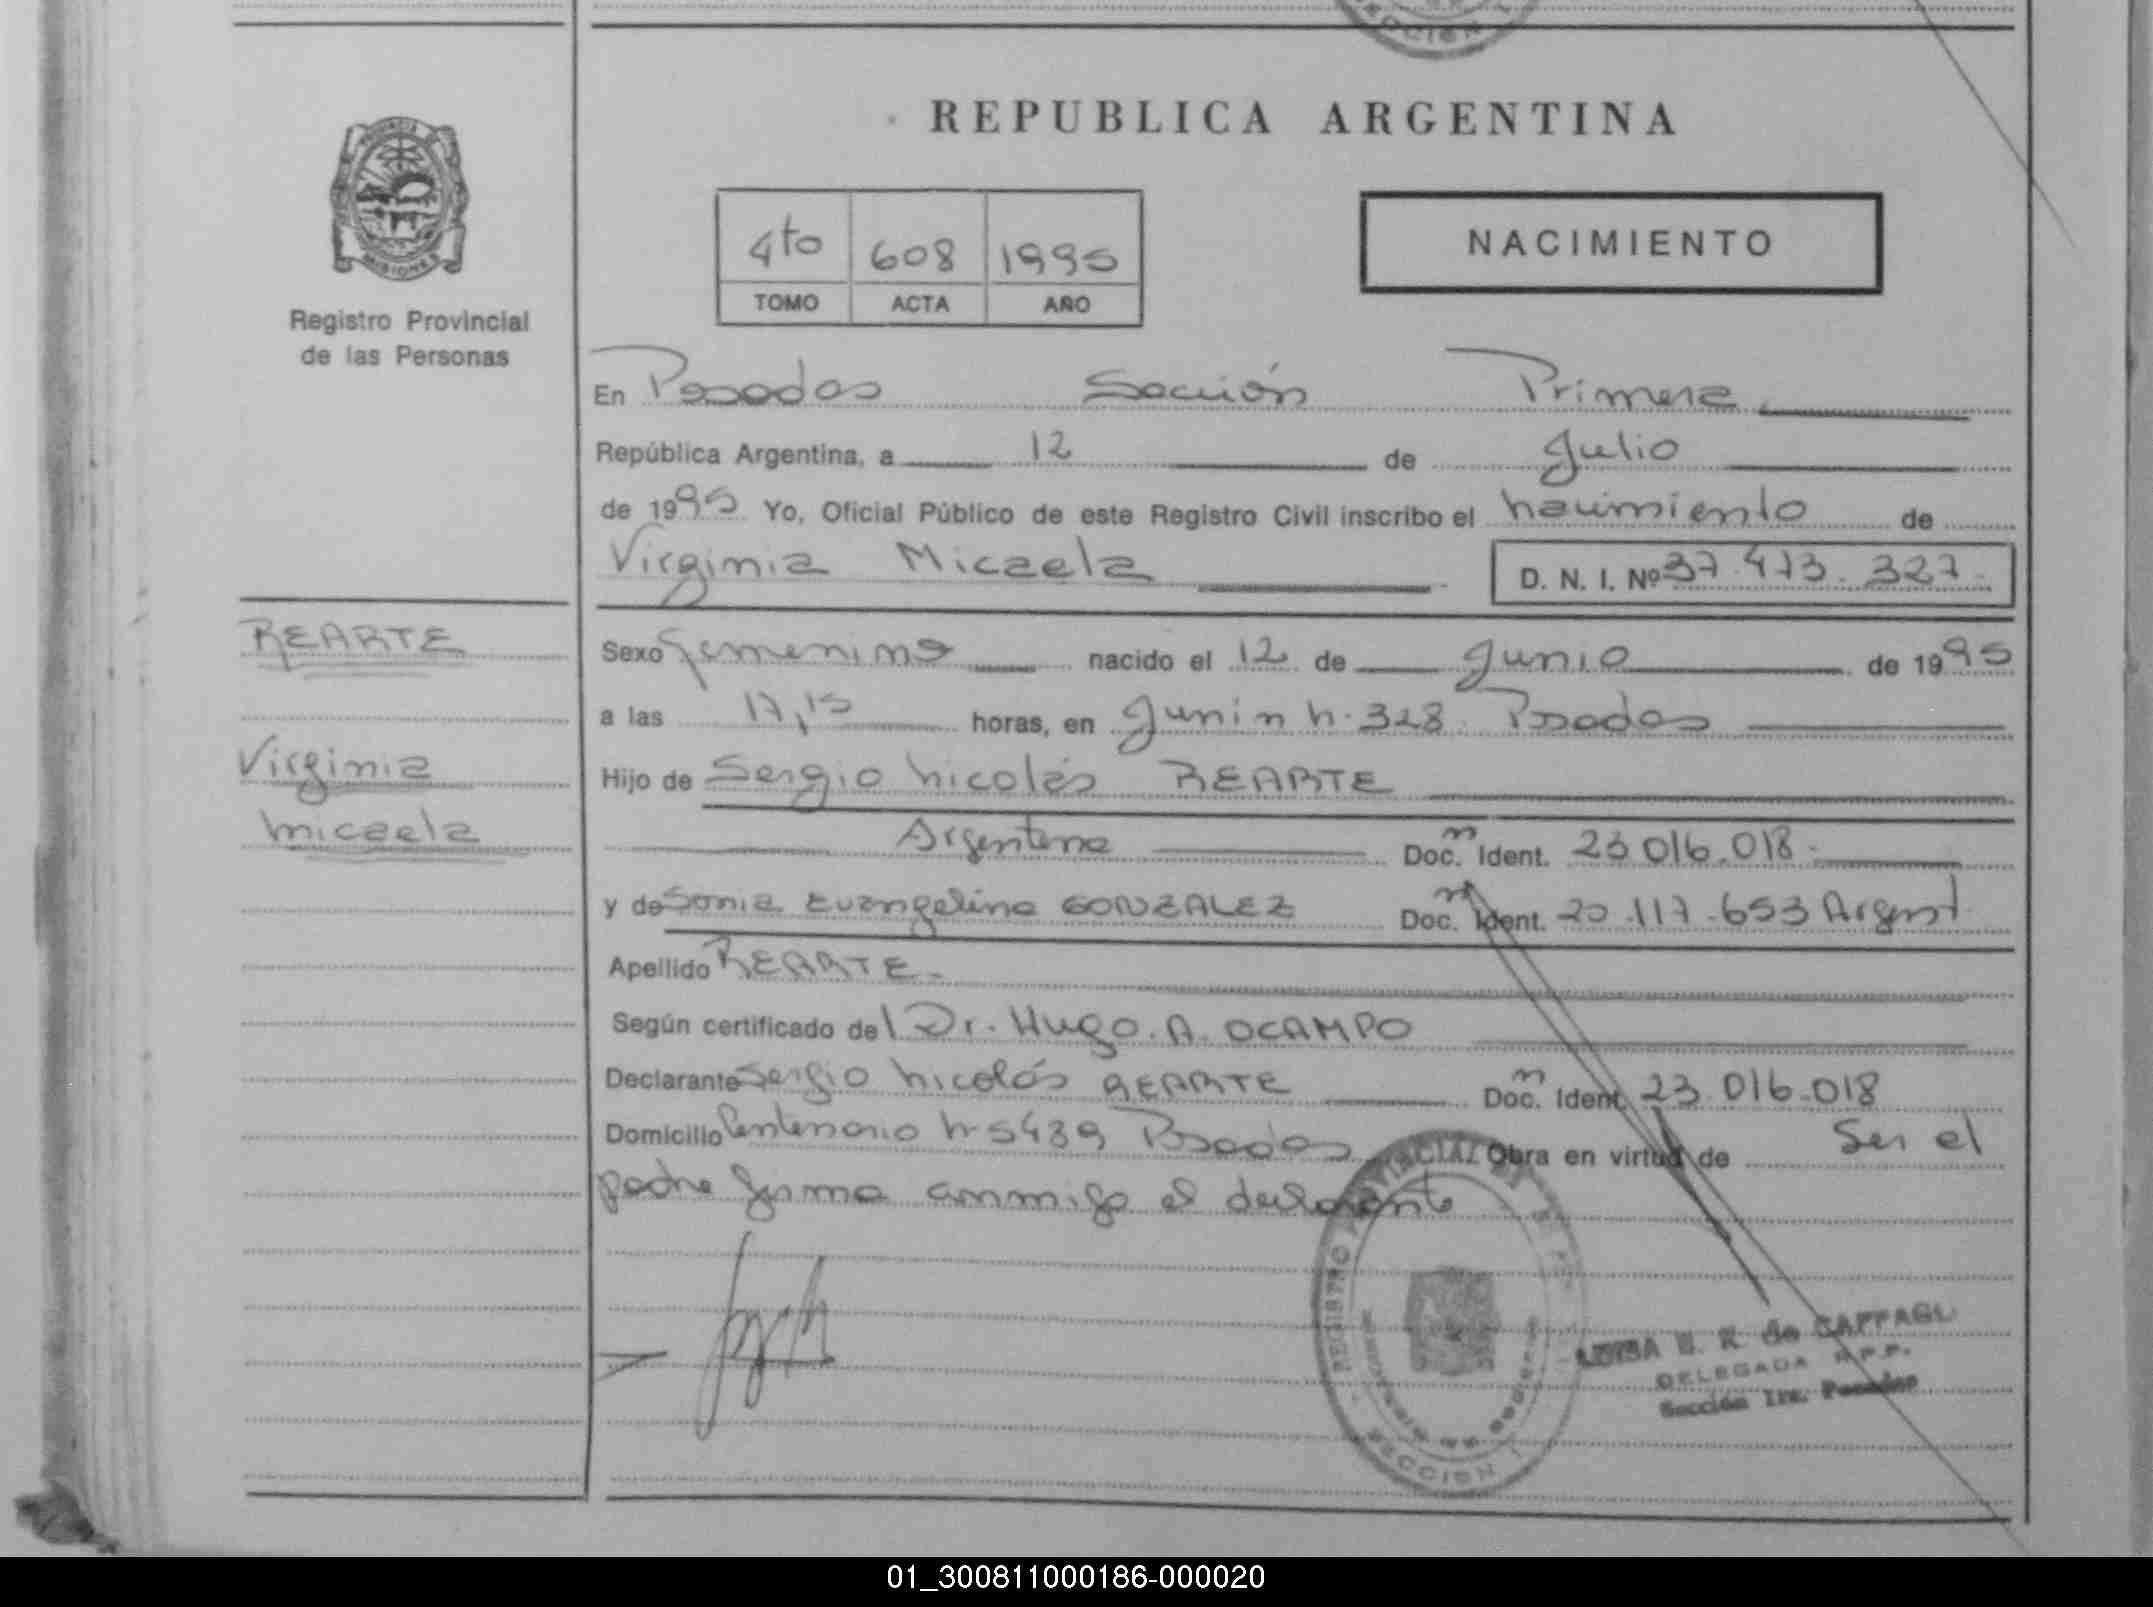 SECCION 1
REPUBLICA ARGENTINA
PROVINCIA DE
MISIONES
4to 608 1995
TOMO ACTA AÑO
NACIMIENTO
Registro Provincial
de las Personas
En Posadas Sección Primera
República Argentina, a 12 de Julio
de 1995 Yo, Oficial Público de este Registro Civil inscribo el nacimiento de
Virginia Micaela D. N. I. Nº 37.473.327
REARTE
Sexo Femenino nacido el 12 de Junio de 1995
a las 17,15 horas, en Junin n. 328 Posadas
Virginia
Hijo de Sergio Nicolás REARTE
Micaela
Argentino Doc. Ident. 23 016.018
y de Sonia Evangelina GONZALEZ Doc. Ident. 20.117.653 Argent
Apellido REARTE
Según certificado del Dr. Hugo. A. OCAMPO
Declarante Sergio Nicolás REARTE Doc. Ident. 23.016.018
Domicilio Centenario n 5439 Posadas Obra en virtud de Ser el
padre firma conmigo el declarante
REGISTRO PROVINCIAL
SECCION 1
de CAFFAGL
DELEGADA R.P.P.
Sección 1ra. Posadas
01_300811000186-000020